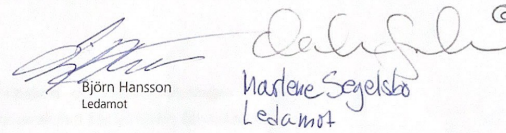 Björn Hansson
Ledamot
Marlene Segelsbo
Ledamot